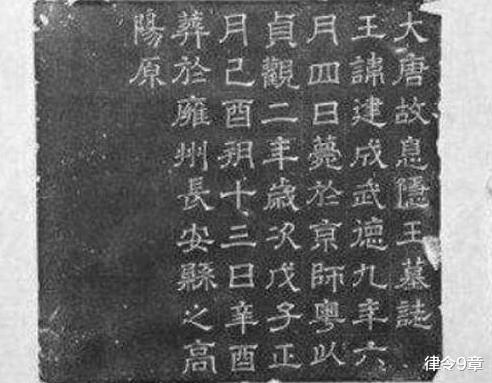 大唐故息隱王墓誌
王諱建成武德九年六
月四日薨於京師粵以
貞觀二年歲次戊子正
月己酉朔十三日辛酉
葬於雍州長安縣之高
陽原
律令9章